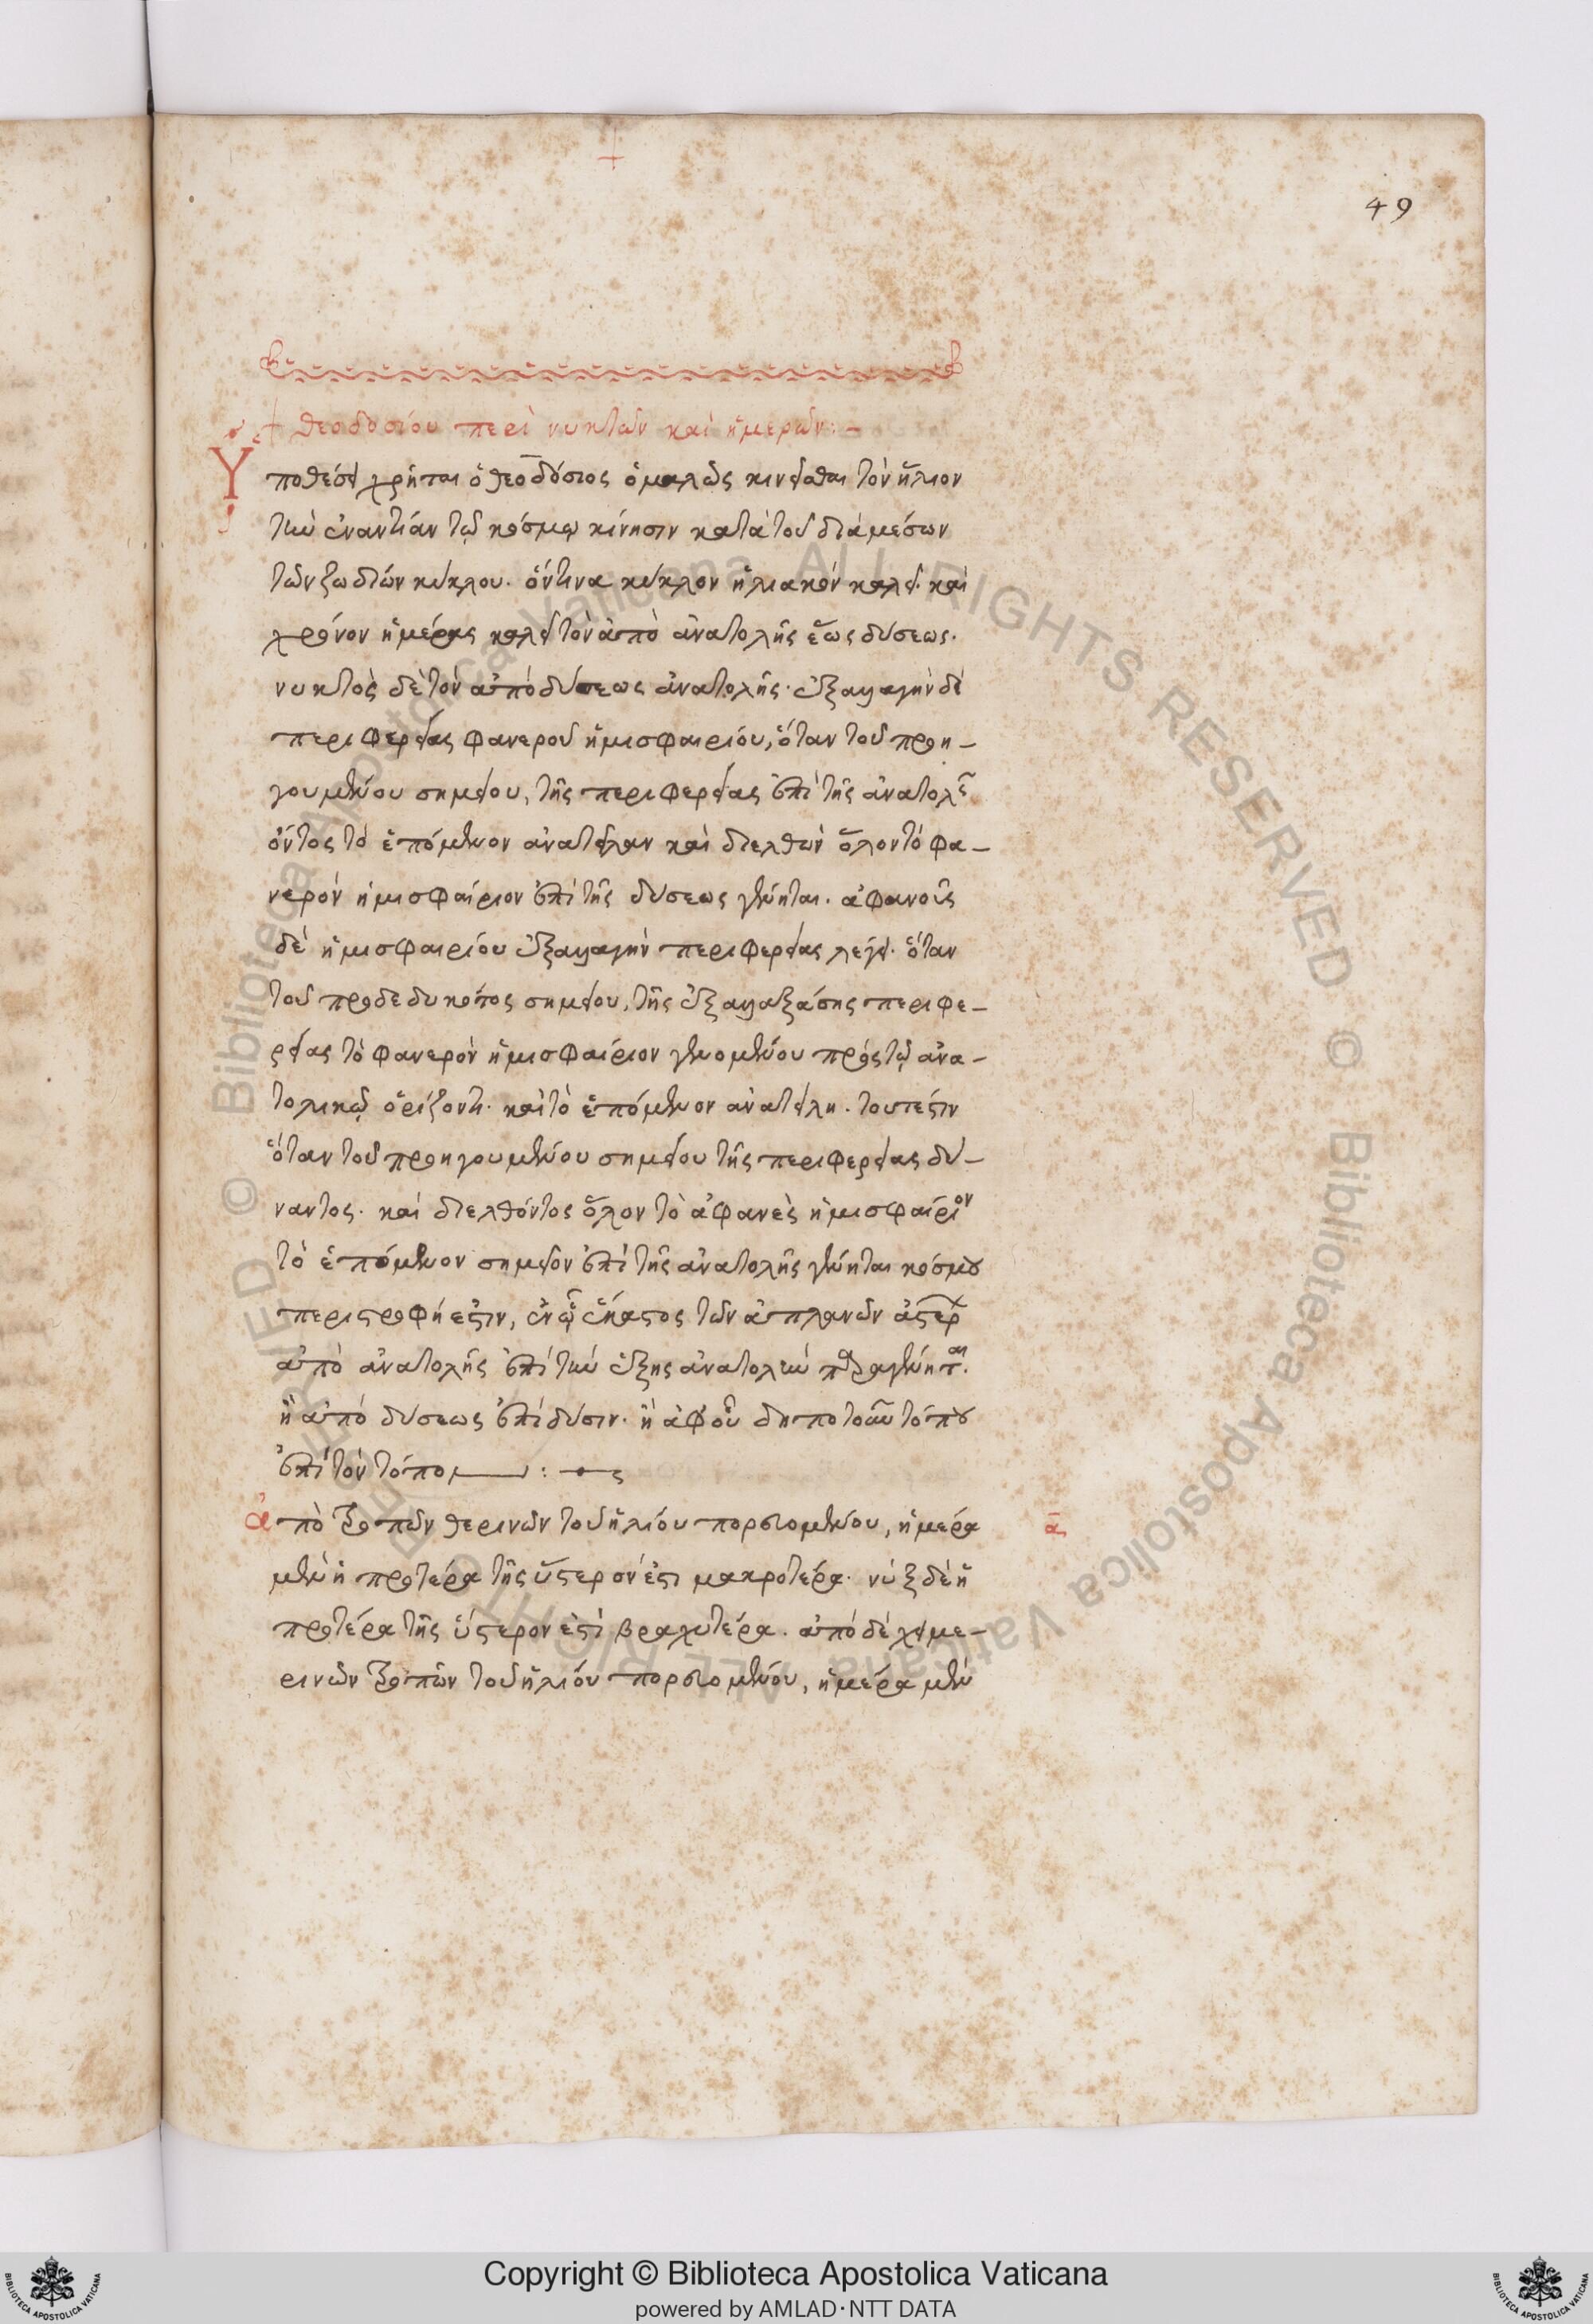 49
+ θεοδοσίου περὶ νυκτῶν καὶ ἡμερῶν:–
Ὑποθέσει χρῆται ὁ θεοδόσιος ὁμαλῶς κινεῖσθαι τὸν ἥλιον
τὴν ἐναντίαν τῷ κόσμῳ κίνησιν κατὰ τοῦ διὰ μέσων
τῶν ζωδίων κύκλου. ὅντινα κύκλον ἡλιακὸν καλεῖ. καὶ
χρόνον ἡμέρας καλεῖ τὸν ἀπὸ ἀνατολῆς ἕως δύσεως.
νυκτὸς δὲ τὸν ἀπὸ δύσεως ἀνατολῆς. ἐξαλλαγὴν δὲ
περιφερείας φανεροῦ ἡμισφαιρίου, ὅταν τοῦ προη–
γουμένου σημείου, τῆς περιφερείας ἐπὶ τῆς ἀνατολῆς
ὄντος τὸ ἑπόμενον ἀνατεῖλαν καὶ διελθὼν ὅλον τὸ φα–
νερὸν ἡμισφαίριον ἐπὶ τῆς δύσεως γένηται. ἀφανοῦς
δὲ ἡμισφαιρίου ἐξαλλαγὴν περιφερείας λέγει. ὅταν
τοῦ προδεδυκότος σημείου, τῆς ἐξαλλαξάσης περιφε–
ρείας τὸ φανερὸν ἡμισφαίριον γενομένου πρὸς τῷ ἀνα–
τολικῷ ὁρίζοντι. καὶ τὸ ἑπόμενον ἀνατείλη. τουτέστιν
ὅταν τοῦ προηγουμένου σημείου τῆς περιφερείας δύ–
ναντος. καὶ διελθόντος ὅλον τὸ ἀφανὲς ἡμισφαίριον
τὸ ἑπόμενον σημεῖον ἐπὶ τῆς ἀνατολῆς γένηται κόσμου
περιστροφή ἐστιν, ἐν ᾧ ἕκαστος τῶν ἀπλανῶν ἀστέρων
ἀπὸ ἀνατολῆς ἐπὶ τὴν ἑξῆς ἀνατολὴν παραγένηται.
ἢ ἀπὸ δύσεως ἐπὶ δύσιν. ἢ ἀφ' οὗ δηποτοῦν τόπου
ἐπὶ τὸν τόπον :
ἀπὸ τροπῶν θερινῶν τοῦ ἡλίου πορευομένου, ἡμέρα
μὲν ἡ προτέρα τῆς ὕστερόν ἐστι μακροτέρα. νὺξ δὲ ἡ
προτέρα τῆς ὕστερον ἐστὶ βραχυτέρα. ἀπὸ δὲ χειμε–
ρινῶν τροπῶν τοῦ ἡλίου πορευομένου, ἡμέρα μὲν
Copyright © Biblioteca Apostolica Vaticana
powered by AMLAD·NTT DATA